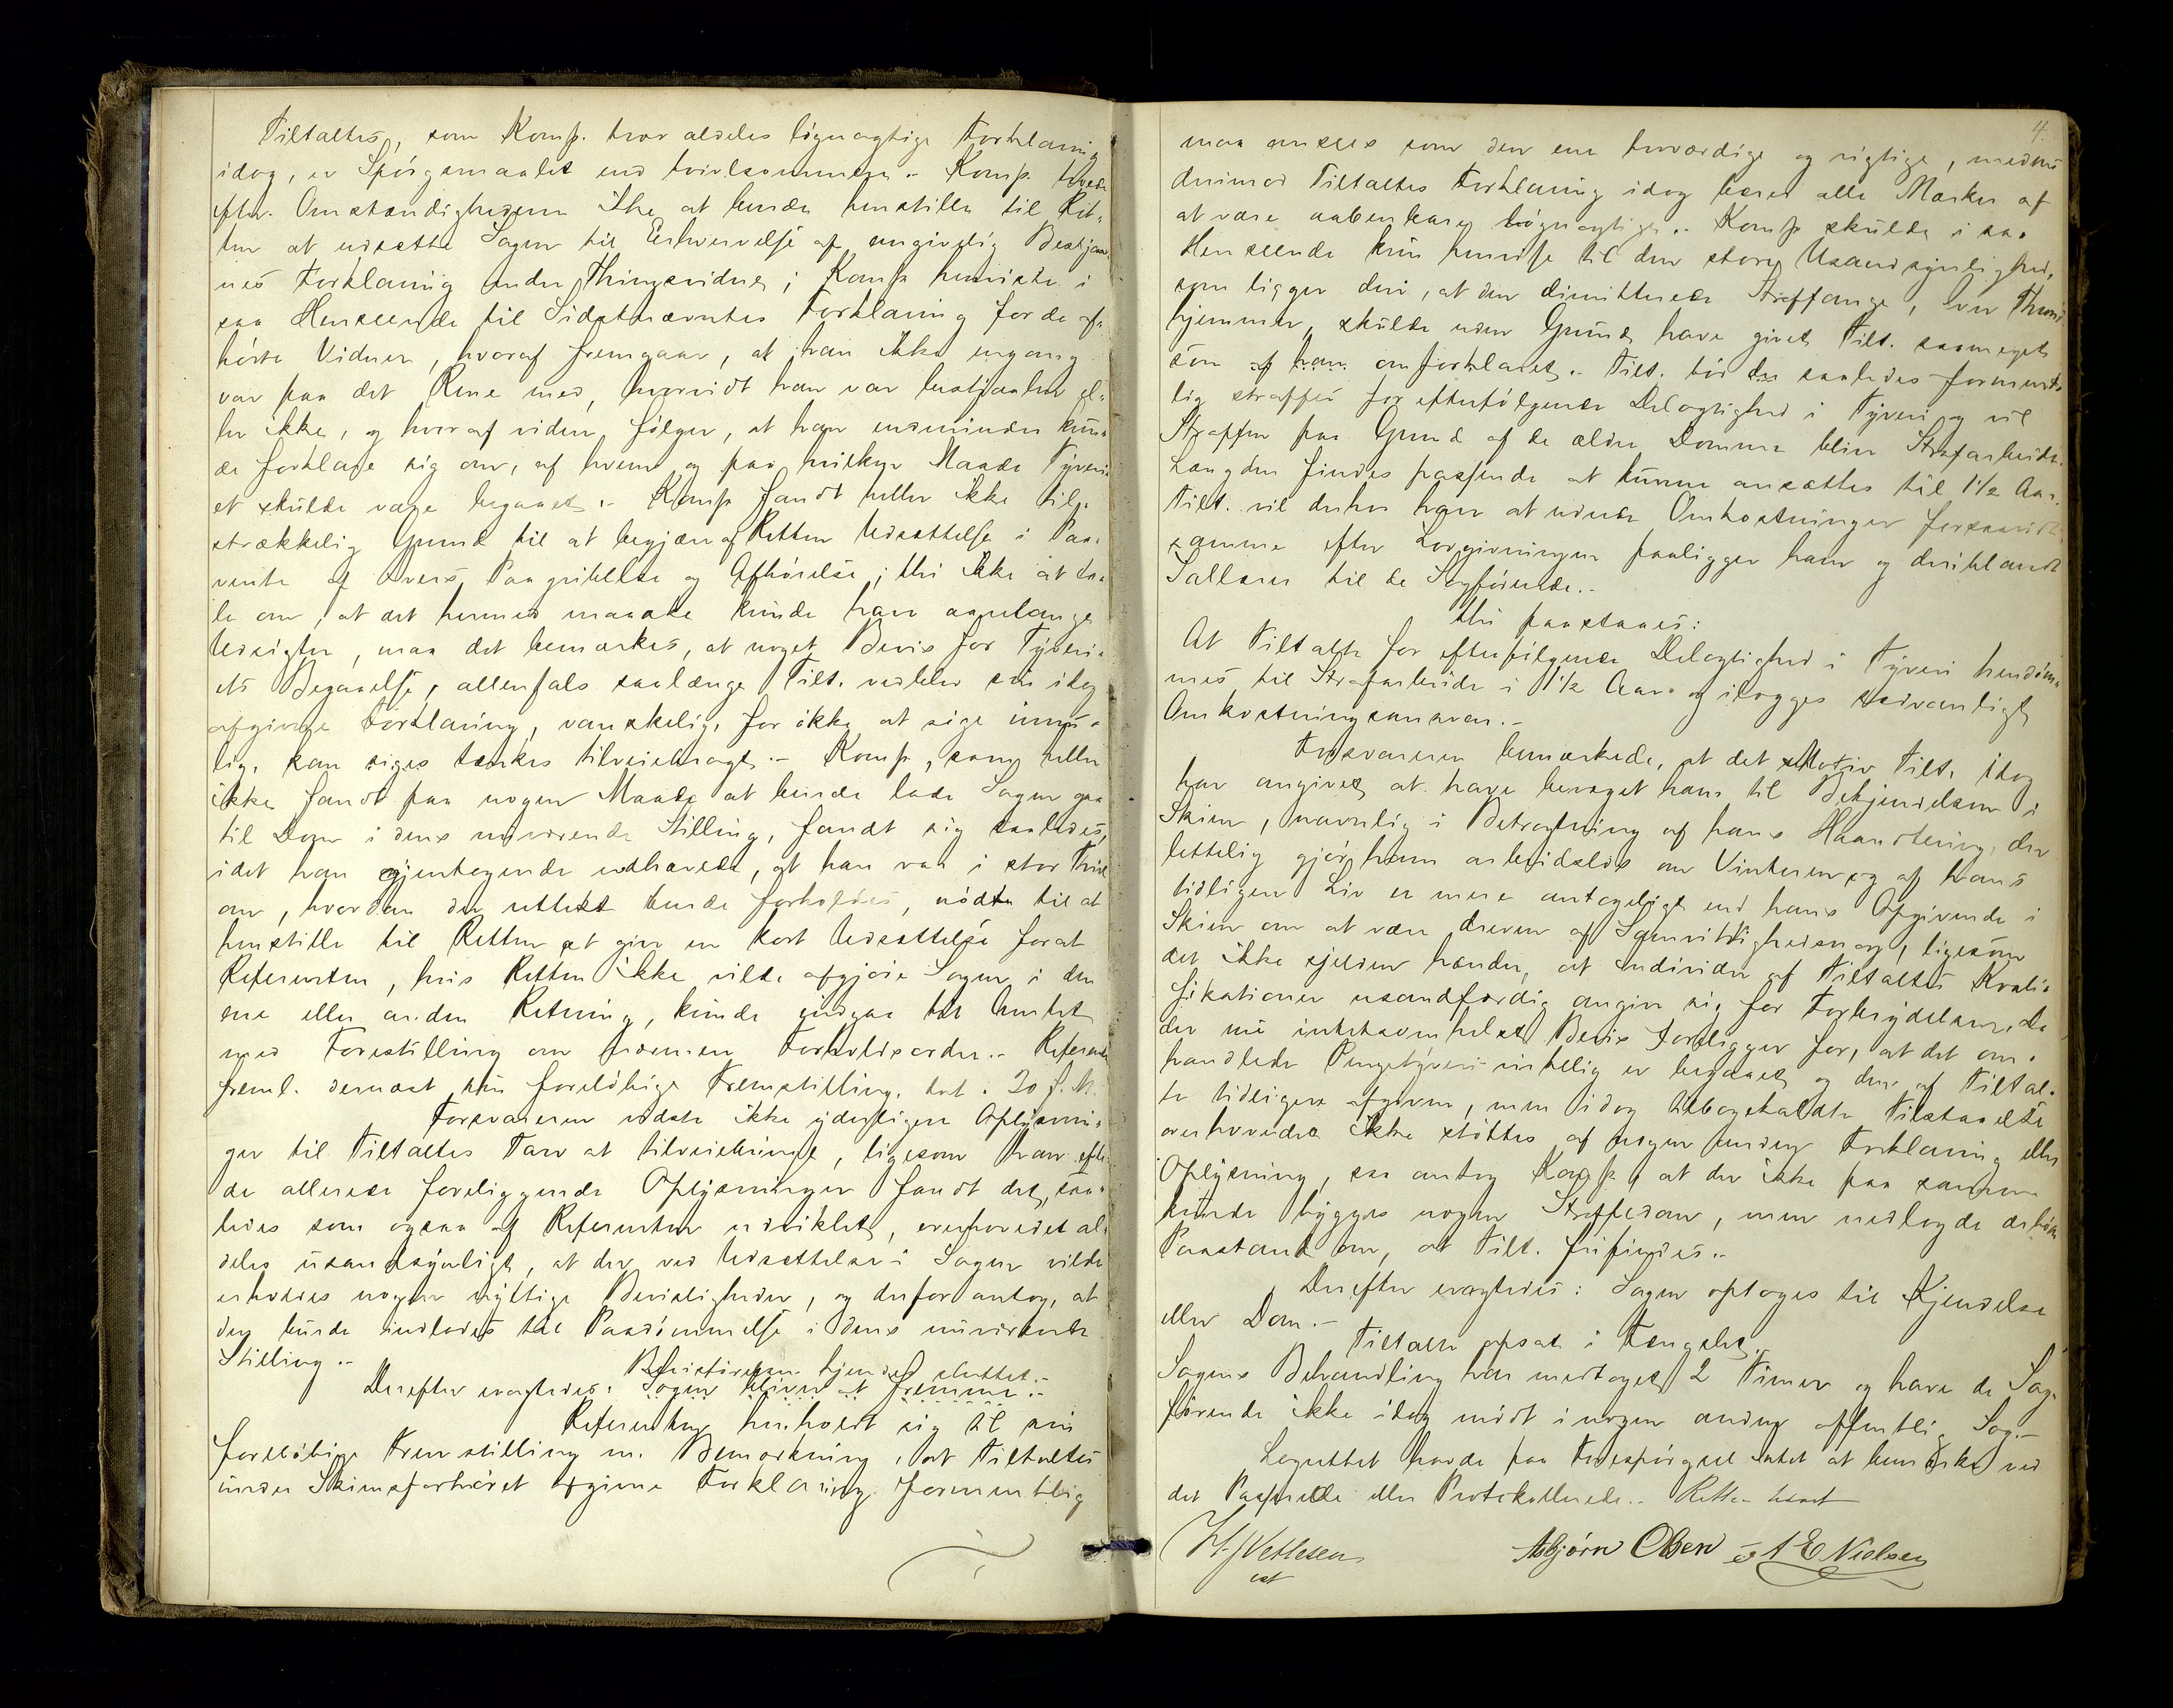 Tiltaltes, som Komp. tror aldeles løgnagtige Forklaring
idag, er Spørgsmaalet end tvivlsommere.- Komp. troede
efter Omstændighederne ikke at burde henstille til Ret-
ten at udsætte Sagen til Erhvervelse af angivelig Bestjaal-
nes Forklaring under Thingsvidne; Komp henviste i
saa Henseende til Sidstnævntes Forklaring for de af-
hørte Vidner, hvoraf fremgaar, at han ikke engang
var paa det Rene med, hvorvidt han var bestjaalet el-
ler ikke, og hvoraf videre følger, at han endmindre kun-
de forklare sig om, af hvem og paa hvilken Maade Tyveri-
et skulde være begaaet.- Komp fandt heller ikke til-
strækkelig Grund til at begjære af Retten Udsættelse i Paa-
vente af Ivers Paagribelse og Afhørelse; thi ikke at ta-
le om, at det hermed maaske kunde have aarelange
Udsigter, maa det bemærkes, at noget Bevis for Tyveri-
ets Begaaelse, allenfals saalænge Tilt. vedblev sin idag
afgivne Forklaring, vanskelig, for ikke at sige umu-
lig, kan siges tænkes tilveiebragt.- Komp, som heller
ikke fandt paa nogen Maade at burde lade Sagen gaa
til Dom i dens nuværende Stilling, fandt sig saaledes,
idet han gjentagende udhævede, at han var i stor Tvivl
om, hvordan der rettest burde forholdes, nødt til at
henstille til Retten at give en kort Udsættelse forat
Referenten, hvis Retten ikke vilde afgjøre Sagen i den
ene eller anden Retning, kunde indgaa til Amtet
med Forestilling om fornøden Forholdsordre.- Referenten
freml. dernæst sin foreløbige Fremstilling, dat. 30 f. M.
Forsvareren vidste ikke yderligere Oplysnin-
ger til Tiltaltes Tarv at tilveiebringe, ligesom han efter
de allerede foreliggende Oplysninger fandt det, saa-
ledes som ogsaa af Referenten udviklet, overhovedet al-
deles usandsynligt, at der ved Udsættelse i Sagen vilde
erholdes nogen nyttige Bevisligheder, og derfor antog, at
den burde indlades til Paadømmelse i dens nuværende
Stilling.-
Bevisførelsen kjendes sluttet.-
Derefter eragtedes: Sagen bliver at fremme.-
Referenten henholdt sig til sin
foreløbige Fremstilling m. Bemærkning, at Tiltaltes
under Skiensforhøret afgivne Forklaring formentlig
4.
maa ansees som den ene troværdige og rigtige, medens
derimod Tiltaltes Forklaring idag bærer alle Mærker af
at være aabenbare løgnagtige.- Komp skulde i saa
Henseende kun henvise til den store Usandsynlighed,
som ligger deri, at den dimitterede Straffange, Iver Thoms
hjemmen, skulde uden Grund have givet Tilt. saameget
som af ham omforklaret.- Tilt. bør der saaledes forment-
lig straffes for efterfølgende Delagtighed i Tyveri og vil
Straffen paa Grund af de ældre Domme blive Strafarbeide.
Længden findes passende at kunne ansættes til 1½ Aar.
Tilt. vil derhos have at udrede Omkostninger forsaavidt
samme efter Lovgivningen paaligger ham og deriblandt
Sallarer til de Sagførende.-
Thi paastaaes:
At Tiltalte for efterfølgende Delagtighed i Tyveri hendøm-
mes til Strafarbeide i 1½ Aar og ilægges sedvanligt
Omkostningsansvar.-
Forsvareren bemærkede, at det Motiv Tilt. idag
har angivet at have bevæget ham til Bekjendelsen i
Skien, navnlig i Betragtning af hans Haandtering, der
lettelig gjør ham arbeidsløs om Vinteren og af hans
tidligere Liv er mere antageligt end hans Opgivende i
Skien om at være dreven af Samvittighedsnag, ligesom
det ikke sjelden hænder, at Individer af Tiltaltes Kvali-
fikationer usandfærdig angiver sig for Forbrydelser. Da
der nu intetsomhelst Bevis foreligger for, at det om-
handlede Pengetyveri virkelig er begaaet og den af Tiltal-
te tidligere afgivne, men idag tilbagekaldte Tilstaaelse
overhovedet ikke støttes af nogen anden Forklaring eller
Oplysning, saa antog Komp, at der ikke paa samme
kunde bygges nogen Straffedom, men nedlagde derfor
Paastand om, at Tilt. frifindes.-
Derefter eragtedes: Sagen optages til Kjendelse
eller Dom.-
Tiltalte afsat i Fængslet.
Sagens Behandling har medtaget 2 Timer og have de Sag-
førende ikke idag mødt i nogen anden offentlig Sag.-
Laugrettet havde paa Forespørgsel Intet at bemærke ved
det Passerede eller Protokollerede.- Retten hævet
H. J. Vetlesen
cst
Asbjørn Olsen A E Nielsen